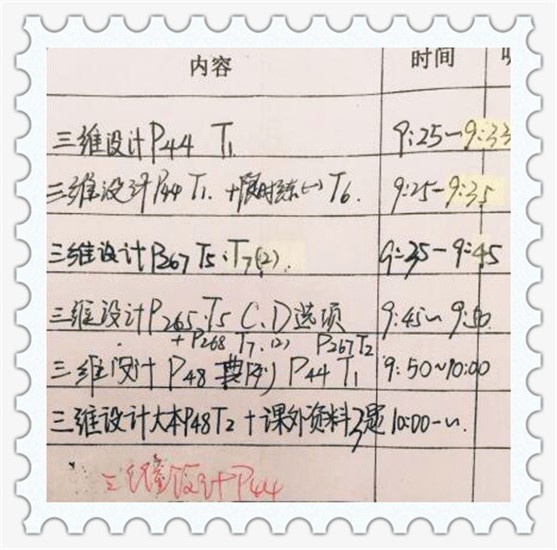 内容 时间
三维设计P44 T1 9:25~9:33
三维设计P44 T1. +限时练(一) T6. 9:25-9:35
三维设计P267 T5.T7(2). 9:35-9:45
三维设计P265.T5 C.D选项 9:45~9:50
+P268 T7.(2) P267T2
三维设计 P48 典例 P44 T1 9:50~10:00
三维设计大本P48T2+课外资料3题 10:00-
三维设计P44